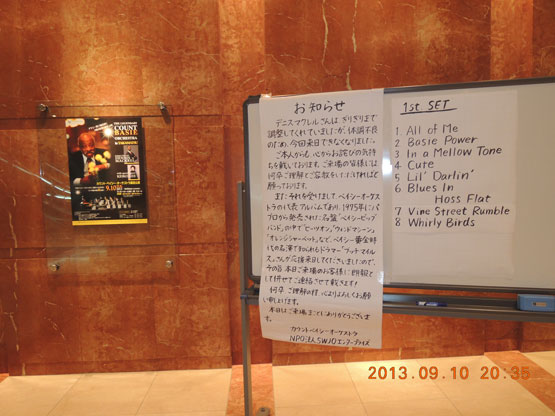 THE LEGENDARY
COUNT
BASIE
ORCHESTRA
9.10
お知らせ
デニスマクレルさんは、ぎりぎりまで
調整してくれていましたが、体調不良
のため、今回来日できなくなりました。
ご本人からも、心からお詫びの気持
ちを戴いております。ご来場の皆様には
何卒ご理解とご容赦をいただければと
願っております。
また、それを受けまして、ベイシーオーケス
トラの代表アルバムであり、1975年にパ
ブロから発売された名盤"ベイシービッグ
バンド"の中で"ヒーツオン"、"ウィンドマシーン"、
"オレンジシャーベット"など、ベイシー黄金時
代の名演で知られるドラマー"ブッチマイル
ス"さんが応援来日してくださいましたので、
その旨本日ご来場のお客様に朗報とし
て併せてご連絡させて戴きます!
何卒ご理解の程、心よりよろしくお願
い申し上げます。
本日はご来場まことにありがとうございま
す。
カウントベイシーオーケストラ
NPO法人SWJOエンタープライズ
1st. SET
1 All of Me
2 Basie Power
3 In a Mellow Tone
4 Cute
5 Lil' Darlin'
6 Blues In
Hoss Flat
7 Vine Street Rumble
8 Whirly Birds
2013.09.10 20:35